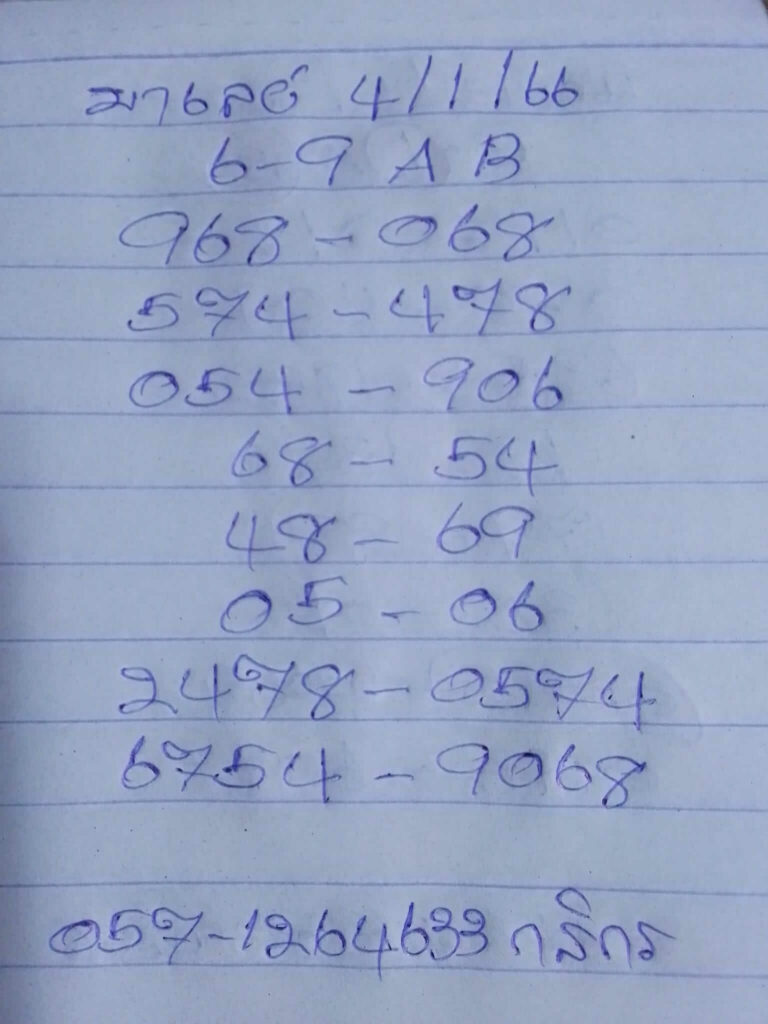 มาเลย์ 4/1/66
6-9 A B
968 - 068
574 - 478
054 - 906
68 - 54
48 - 69
05 - 06
2478 - 0574
6754 - 9068
057-1264633 กสิกร